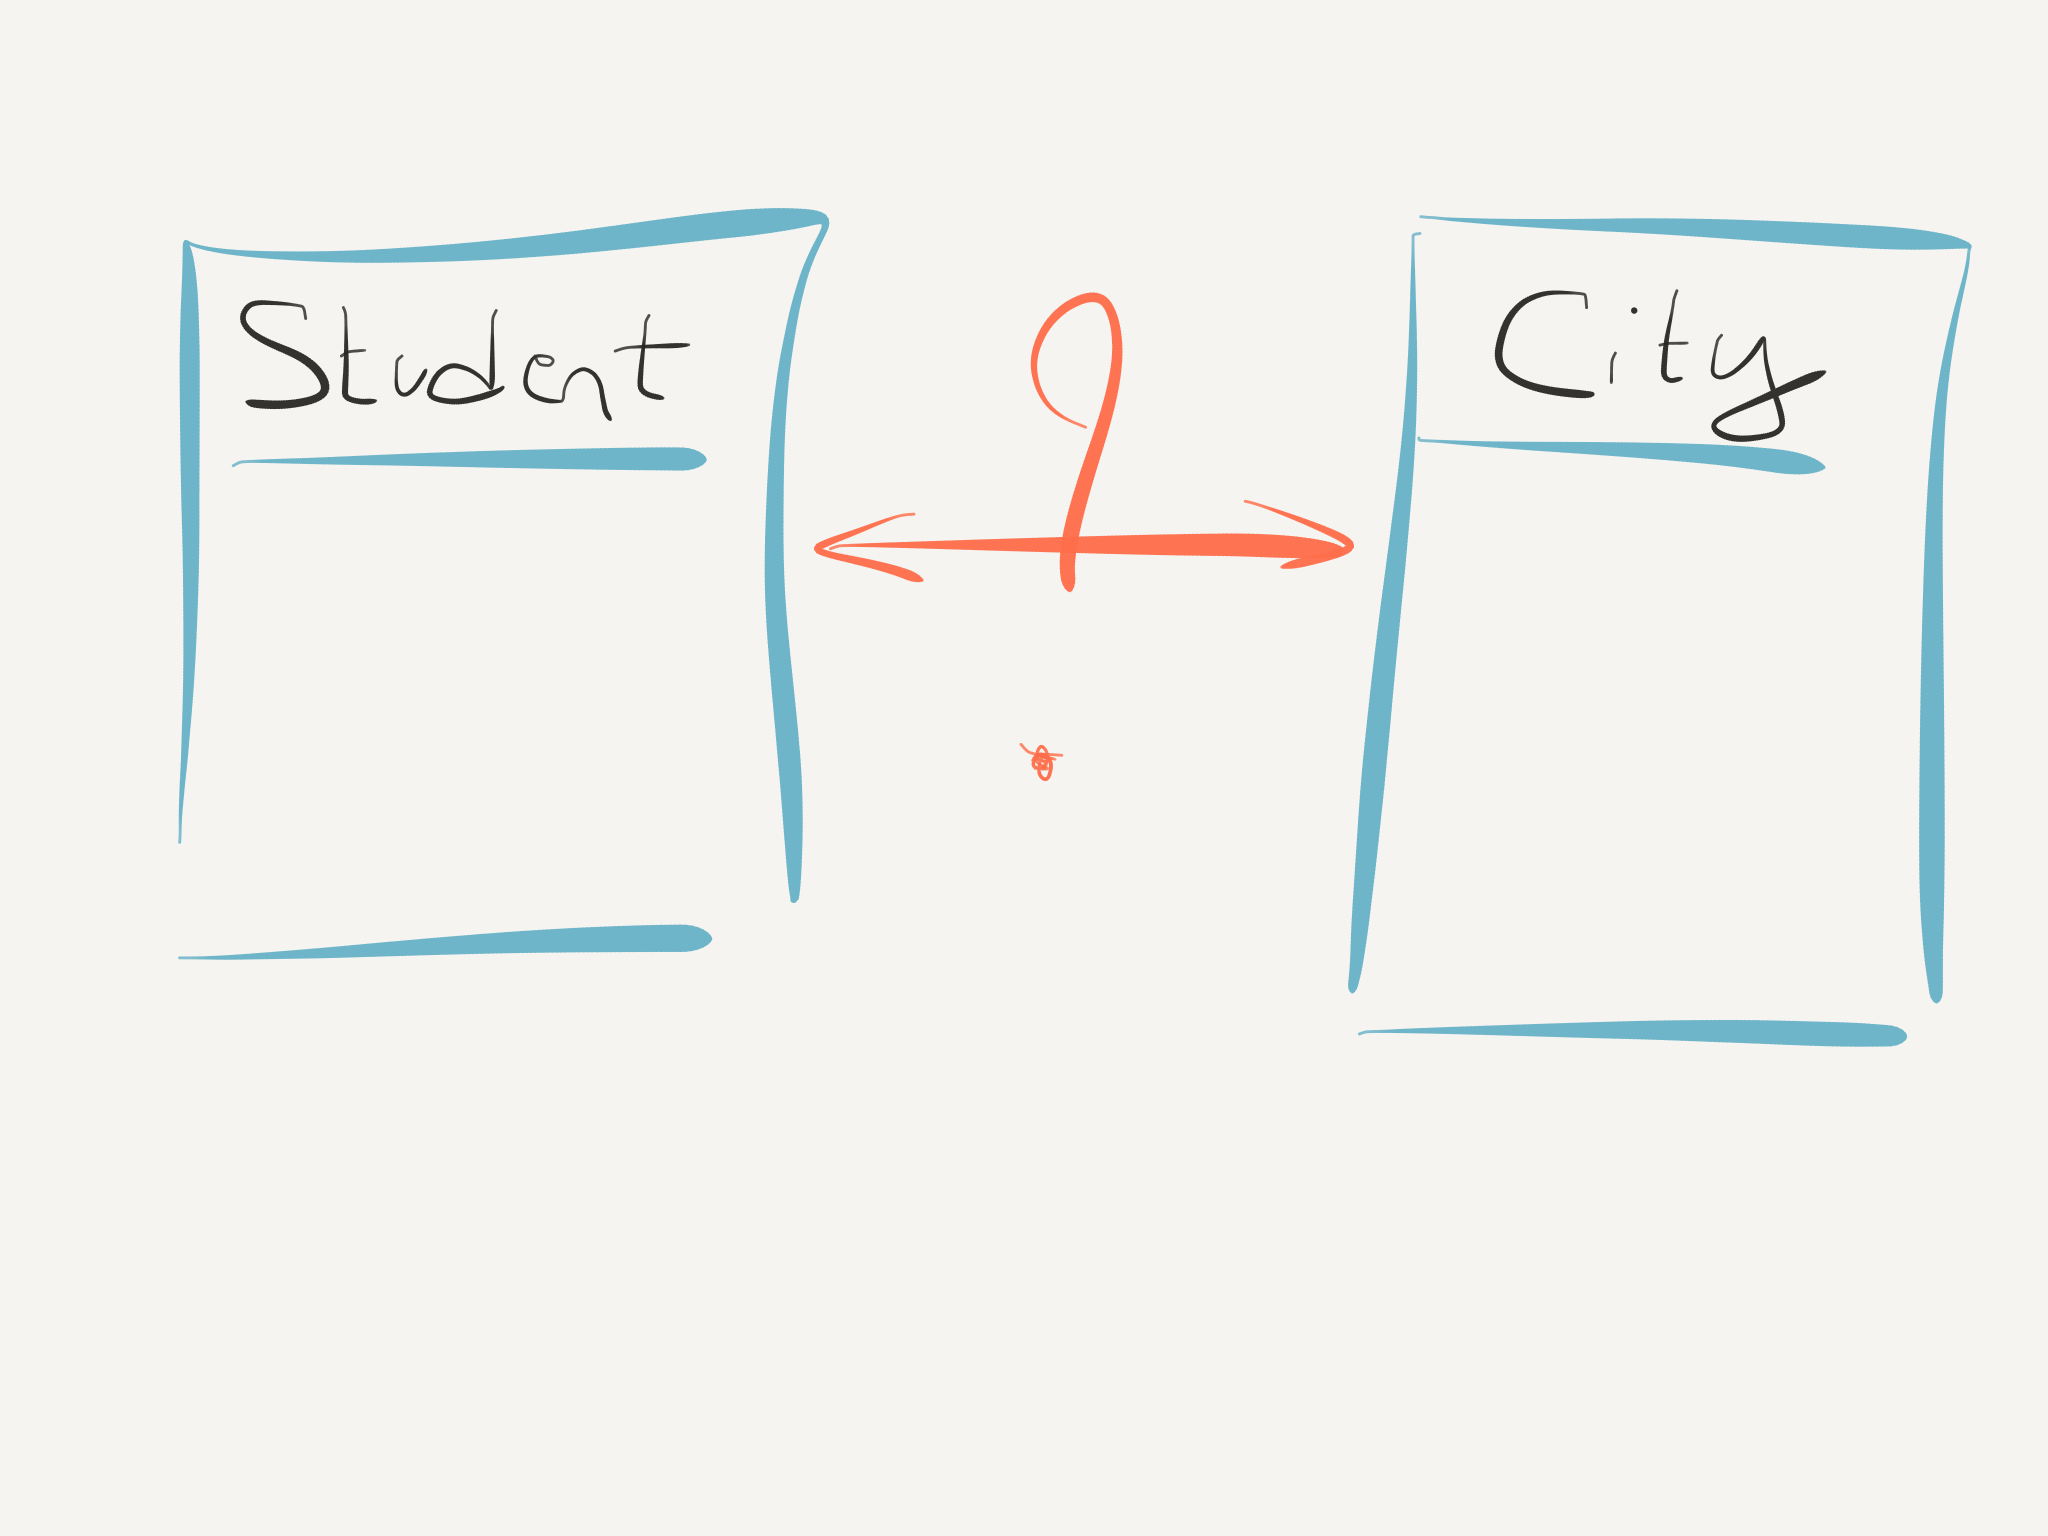 Student
City
?